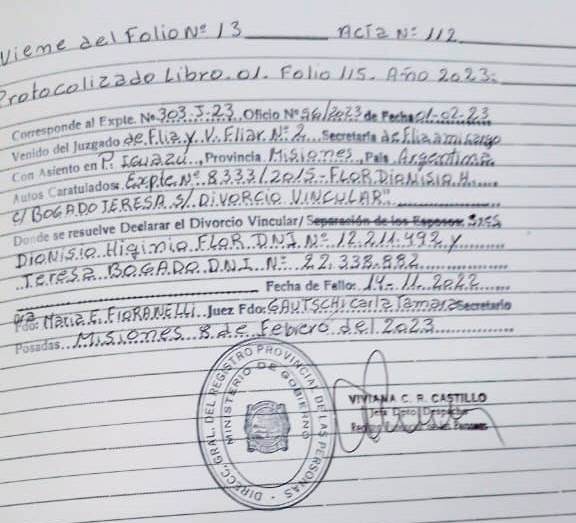 Viene del Folio Nº 13 ACTA Nº 112
Protocolizado Libro. 01. Folio 115. Año 2023.
Corresponde al Expte. No 303-J-23. Oficio Nº 96/2023 de Fecha 01-02-23
Venido del Juzgado de Flia. y V. Fliar. Nº 2. Secretaría de Flia a mi cargo
Con Asiento en P. Iguazú., Provincia Misiones, Pais Argentina.
Autos Caratulados: Expte. Nº 8333/2015 - FLOR DIONISIO H.
C/ BOGADO TERESA S/. DIVORCIO VINCULAR"
Donde se resuelve Declarar el Divorcio Vinculár/ Separación de los Esposos: Sres
Dionisio Higinio FLOR. DNI. Nº 12.211.493 y
Teresa BOGADO. D.N.I. Nº 22.338.882
Fecha de Fallo: 14-11-2022
Fdo: Dra María E. FIORANELLI. Juez Fdo: GAUTSCHI Carla Tamara Secretario
Posadas.. Misiones 8 de Febrero del 2023
DIREC. GRAL. DEL REGISTRO PROVINCIAL DE LAS PERSONAS
MINISTERIO DE GOBIERNO
VIVIANA C. R. CASTILLO
Jefa Dpto. Despacho